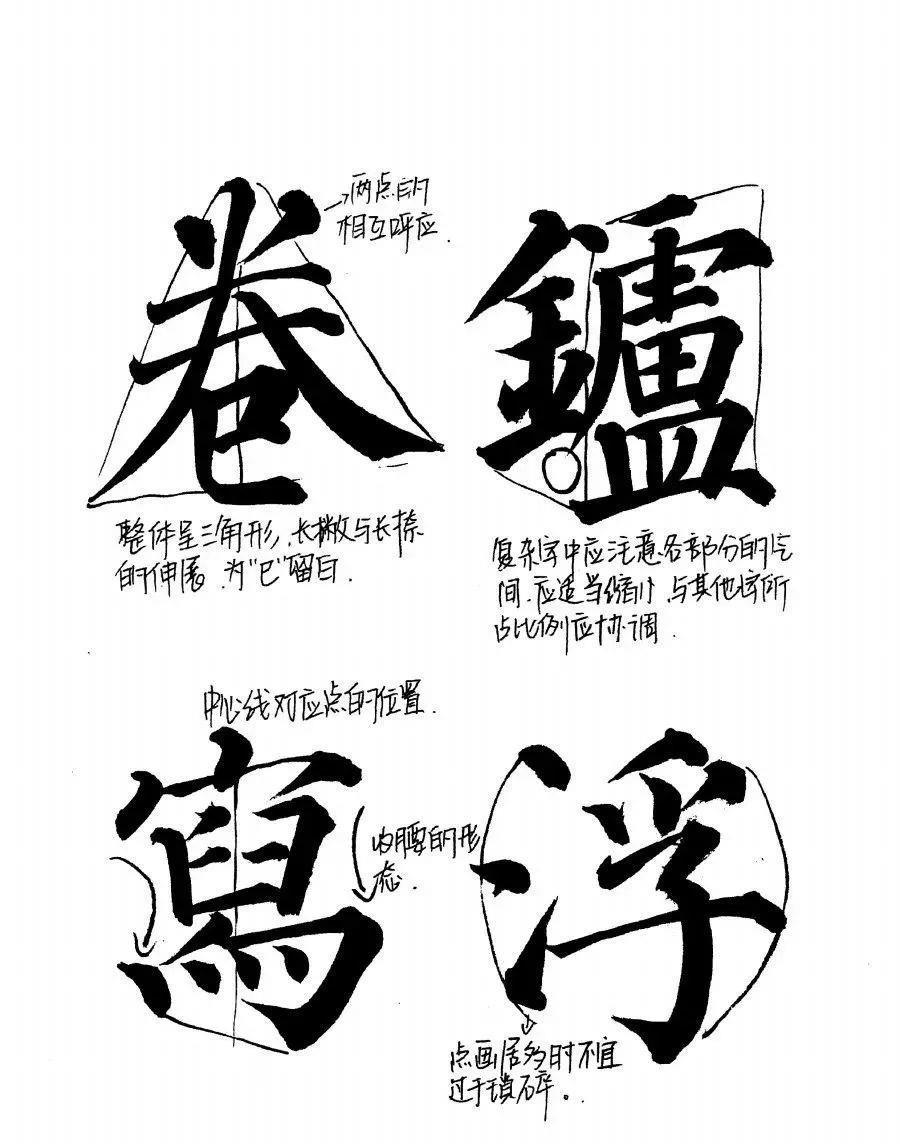 卷
两点的
相互呼应.
整体呈三角形,长撇与长捺
的伸展,为“巳”留白.
鑪
复杂字中应注意各部分的空
间.应适当缩小,与其他字所
占比例应协调.
中心线对应点的位置.
寫
收腰的形
态.
浮
点画居多时不宜
过于琐碎。